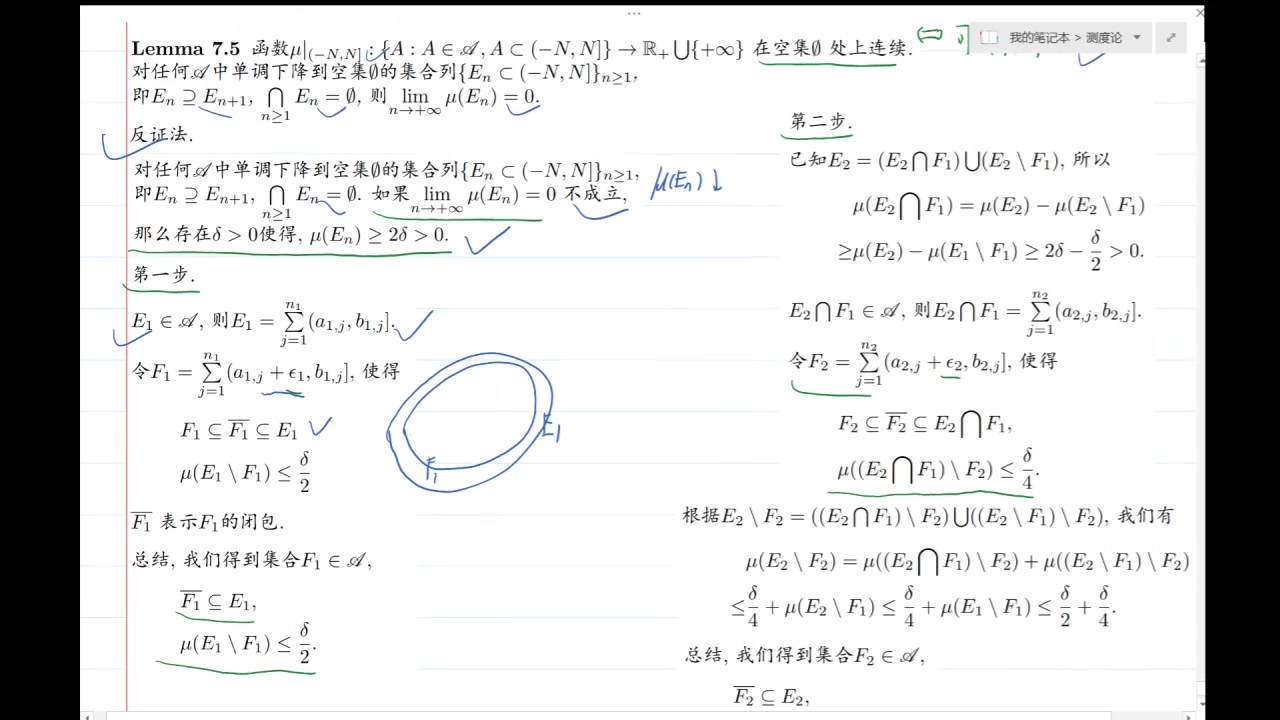 Lemma 7.5 函数μ|_{(-N,N]} : {A : A ∈ 𝒜, A ⊂ (-N, N]} → ℝ₊ ⋃{+∞} 在空集∅ 处上连续.
对任何𝒜中单调下降到空集∅的集合列{E_n ⊂ (-N, N]}_{n≥1},
即E_n ⊇ E_{n+1}, ⋂_{n≥1} E_n = ∅, 则 lim_{n→+∞} μ(E_n) = 0.
反证法.
对任何𝒜中单调下降到空集∅的集合列{E_n ⊂ (-N, N]}_{n≥1},
即E_n ⊇ E_{n+1}, ⋂_{n≥1} E_n = ∅. 如果 lim_{n→+∞} μ(E_n) = 0 不成立,
μ(E_n) ↓
那么存在δ > 0使得, μ(E_n) ≥ 2δ > 0.
第一步.
E₁ ∈ 𝒜, 则E₁ = ∑_{j=1}^{n₁} (a_{1,j}, b_{1,j}].
令F₁ = ∑_{j=1}^{n₁} (a_{1,j} + ϵ₁, b_{1,j}], 使得
F₁ ⊆ \overline{F₁} ⊆ E₁
μ(E₁ \ F₁) ≤ δ/2
E₁
F₁
\overline{F₁} 表示F₁的闭包.
总结, 我们得到集合F₁ ∈ 𝒜,
\overline{F₁} ⊆ E₁,
μ(E₁ \ F₁) ≤ δ/2.
我的笔记本 > 测度论
第二步.
已知E₂ = (E₂ ⋂ F₁) ⋃(E₂ \ F₁), 所以
μ(E₂ ⋂ F₁) = μ(E₂) − μ(E₂ \ F₁)
≥μ(E₂) − μ(E₁ \ F₁) ≥ 2δ − δ/2 > 0.
E₂ ⋂ F₁ ∈ 𝒜, 则E₂ ⋂ F₁ = ∑_{j=1}^{n₂} (a_{2,j}, b_{2,j}].
令F₂ = ∑_{j=1}^{n₂} (a_{2,j} + ϵ₂, b_{2,j}], 使得
F₂ ⊆ \overline{F₂} ⊆ E₂ ⋂ F₁,
μ((E₂ ⋂ F₁) \ F₂) ≤ δ/4.
根据E₂ \ F₂ = ((E₂ ⋂ F₁) \ F₂) ⋃((E₂ \ F₁) \ F₂), 我们有
μ(E₂ \ F₂) = μ((E₂ ⋂ F₁) \ F₂) + μ((E₂ \ F₁) \ F₂)
≤δ/4 + μ(E₂ \ F₁) ≤ δ/4 + μ(E₁ \ F₁) ≤ δ/2 + δ/4.
总结, 我们得到集合F₂ ∈ 𝒜,
\overline{F₂} ⊆ E₂,